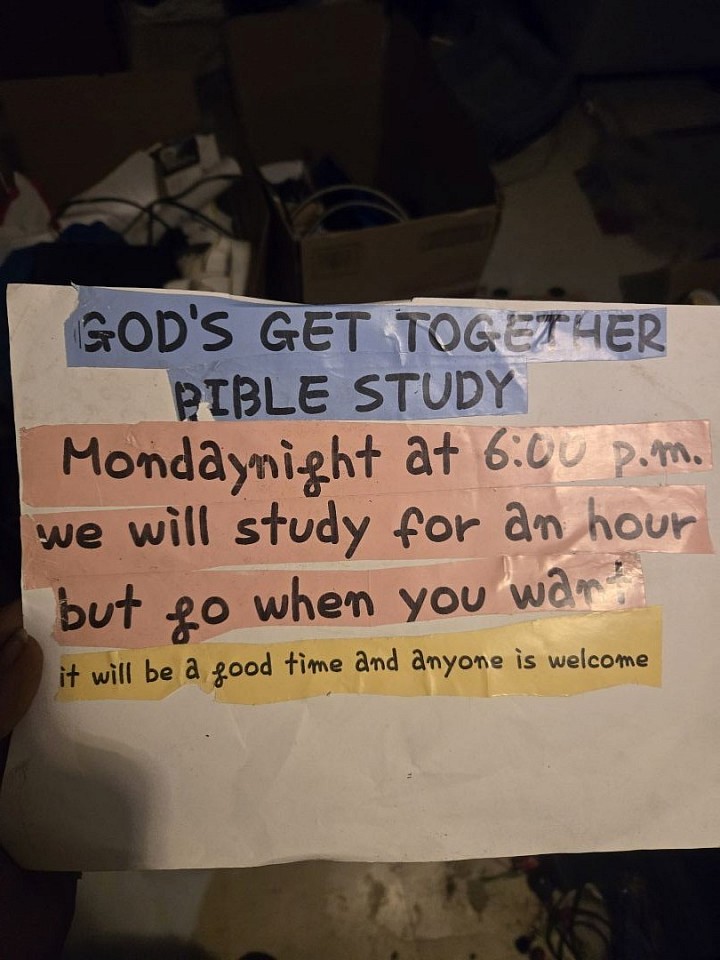 GOD'S GET TOGETHER
BIBLE STUDY
Mondaynight at 6:00 p.m.
we will study for an hour
but go when you want
it will be a good time and anyone is welcome